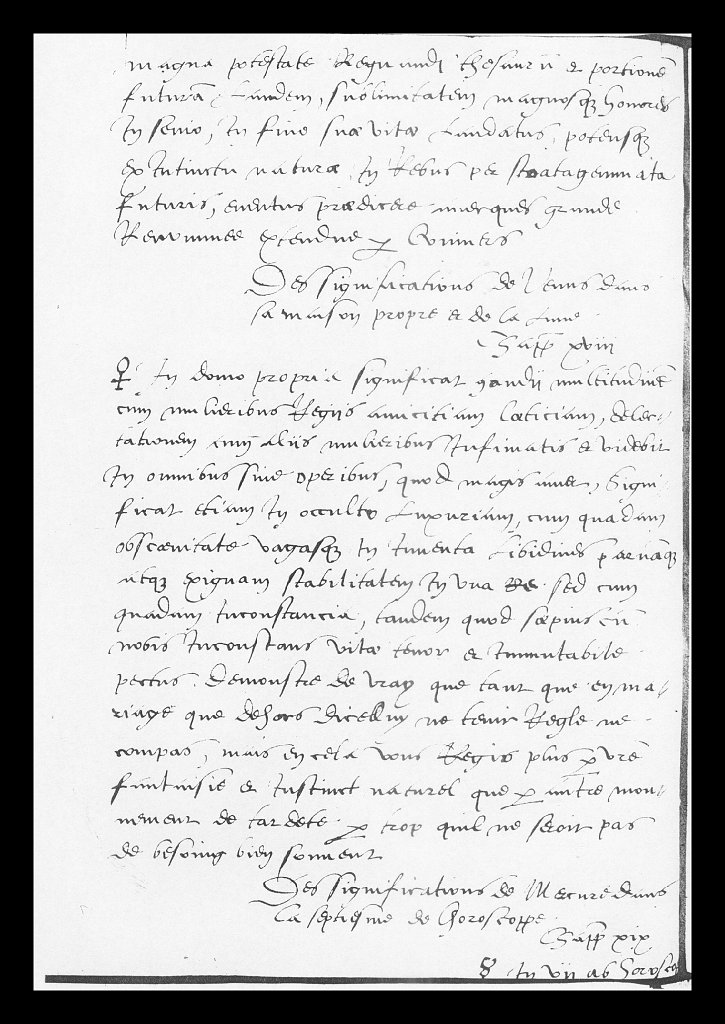 magna potestate Regnandi thesaurū et portionē
futurā, Laudem, sublimitatem magnosq; honores
In senio, In fine suæ vitæ Laudatus, potensq;
ex Intinctu naturæ, In Rebus per stratagemmata
futuris, eventus prædicere avecques grande
Renommee extendue p Univers
Des significations de Venus dans
sa maison propre et de la Lune.
Chapp xviii
♀ In domo propria significat gaudii multitudinē
cum mulieribus Regiis amicitiam læticiam, delec-
tationem cum aliis mulieribus Infimatis et videbit
In omnibus sine operibus, quod magis amet, Signi-
ficat etiam In occulto Luxuriam, cum quadam
obscœnitate vagasq; In Inventa Libidines parvāq;
atq; exiguam stabilitatem In una Re sed cum
quadam Inconstancia, tandem quod sæpius cū
nobis Inconstans vitæ tenor et Immutabile
pectus. Demonstre de vray que tant que en ma-
riage que dehors dicelluy ne tenir Regle ne
compas, mais en cela vous Regis plus p vrē
fantaisie et Instinct naturel que p autre mou-
vement de tardete p trop quil ne seroit pas
de besoing bien souvent
Des significations de Mercure dans
La septiesme de horoscoppe
Chapp xix
☿ In vii ab horosco